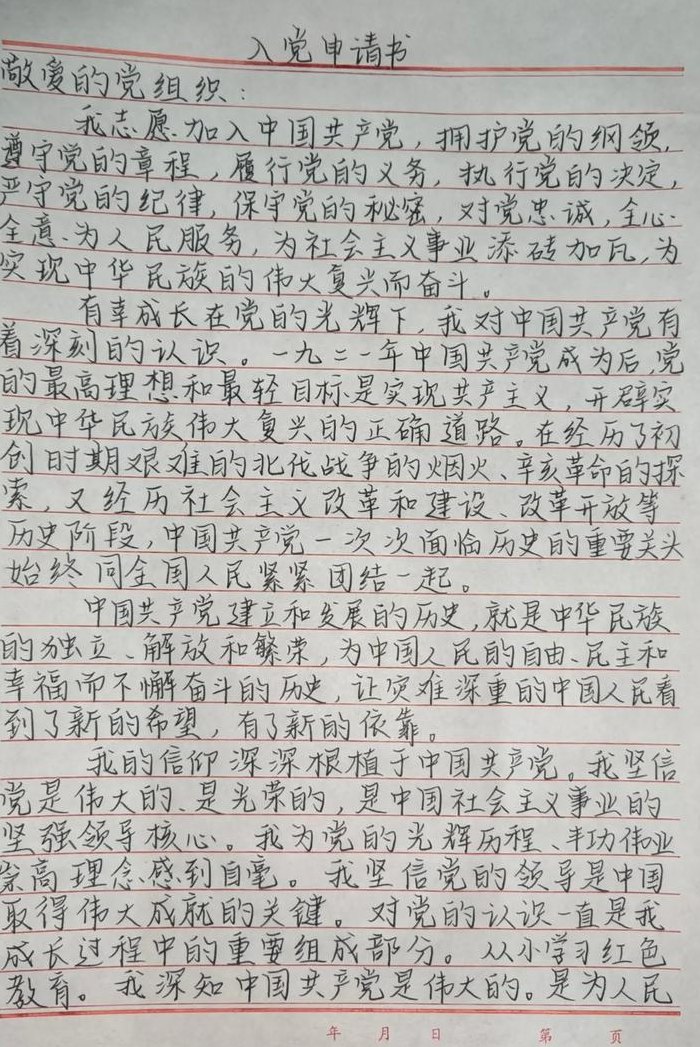 入党申请书
敬爱的党组织：
我志愿加入中国共产党，拥护党的纲领，
遵守党的章程，履行党的义务，执行党的决定，
严守党的纪律，保守党的秘密，对党忠诚，全心
全意、为人民服务，为社会主义事业添砖加瓦，为
实现中华民族的伟大复兴而奋斗。
有幸成长在党的光辉下，我对中国共产党有
着深刻的认识。一九二一年中国共产党成为后，党
的最高理想和最轻目标是实现共产主义，开辟实
现中华民族伟大复兴的正确道路。在经历了初
创时期艰难的北伐战争的烟火、辛亥革命的探
索，又经历社会主义改革和建设、改革开放等
历史阶段，中国共产党一次次面临历史的重要关头
始终同全国人民紧紧团结一起。
中国共产党建立和发展的历史，就是中华民族
的独立、解放和繁荣，为中国人民的自由、民主和
幸福而不懈奋斗的历史，让灾难深重的中国人民看
到了新的希望，有了新的依靠。
我的信仰深深根植于中国共产党。我坚信
党是伟大的、是光荣的，是中国社会主义事业的
坚强领导核心。我为党的光辉历程、丰功伟业
崇高理念感到自毫。我坚信党的领导是中国
取得伟大成就的关键。对党的认识一直是我
成长过程中的重要组成部分。从小学习红色
教育。我深知中国共产党是伟大的。是为人民
年 月 日 第 页